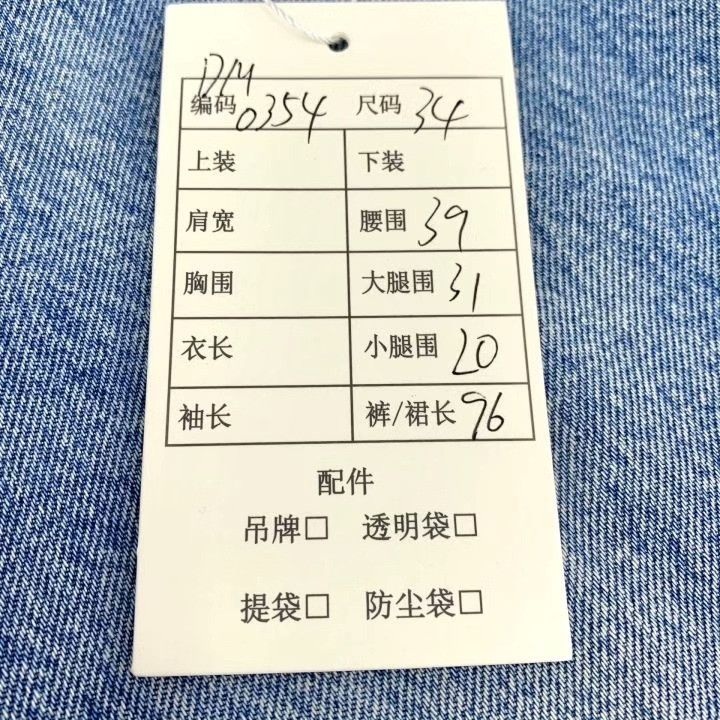 DM
编码 0354 尺码 34
上装 下装
肩宽 腰围 39
胸围 大腿围 31
衣长 小腿围 20
袖长 裤/裙长 96
配件
吊牌□ 透明袋□
提袋□ 防尘袋□